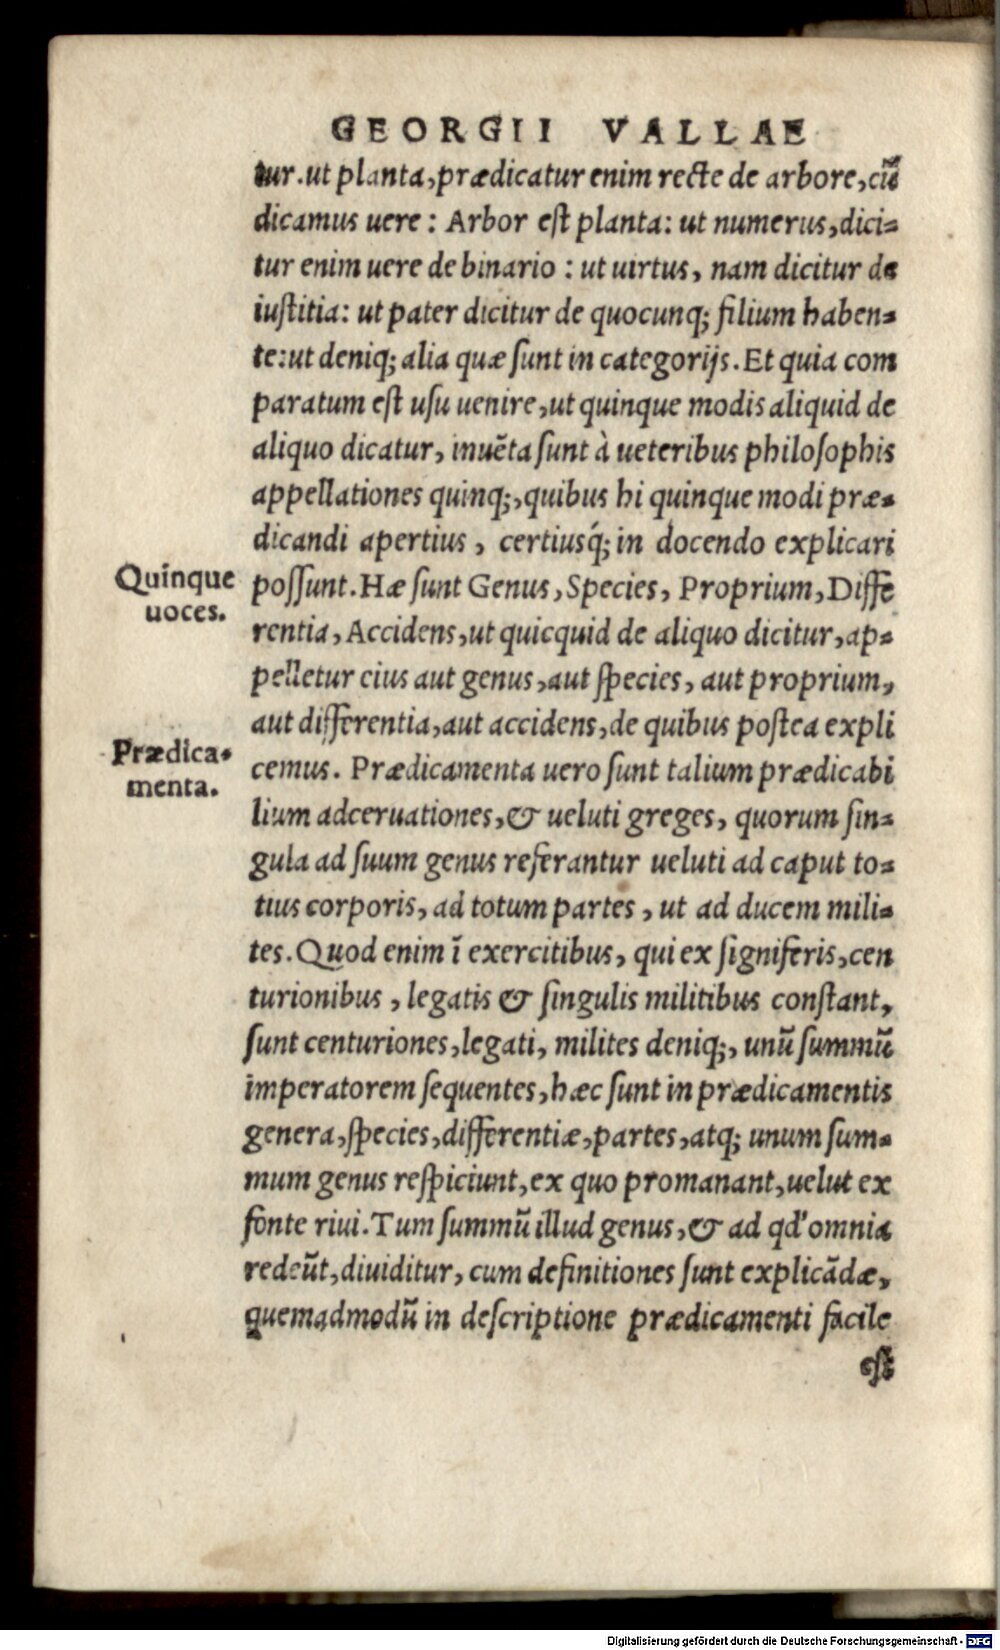 GEORGII VALLAE
tur. ut planta, prædicatur enim recte de arbore, cũ
dicamus uere: Arbor est planta: ut numerus, dici-
tur enim uere de binario: ut uirtus, nam dicitur de
iustitia: ut pater dicitur de quocunq; filium haben-
te: ut deniq; alia quæ sunt in categorijs. Et quia com
paratum est usu uenire, ut quinque modis aliquid de
aliquo dicatur, inuẽta sunt à ueteribus philosophis
appellationes quinq;, quibus hi quinque modi præ-
dicandi apertius, certiusq́; in docendo explicari
Quinque
uoces.
possunt. Hæ sunt Genus, Species, Proprium, Diffe
rentia, Accidens, ut quicquid de aliquo dicitur, ap-
pelletur eius aut genus, aut species, aut proprium,
aut differentia, aut accidens, de quibus postea expli
Prædica-
menta.
cemus. Prædicamenta uero sunt talium prædicabi
lium adceruationes, & ueluti greges, quorum sin-
gula ad suum genus referantur ueluti ad caput to-
tius corporis, ad totum partes, ut ad ducem mili-
tes. Quod enim ĩ exercitibus, qui ex signiferis, cen
turionibus, legatis & singulis militibus constant,
sunt centuriones, legati, milites deniq;, unũ summũ
imperatorem sequentes, hæc sunt in prædicamentis
genera, species, differentiæ, partes, atq; unum sum-
mum genus respiciunt, ex quo promanant, uelut ex
fonte riui. Tum summũ illud genus, & ad qd' omnia
redeũt, diuiditur, cum definitiones sunt explicãdæ,
quemadmodũ in descriptione prædicamenti facile
est
Digitalisierung gefördert durch die Deutsche Forschungsgemeinschaft - DFG